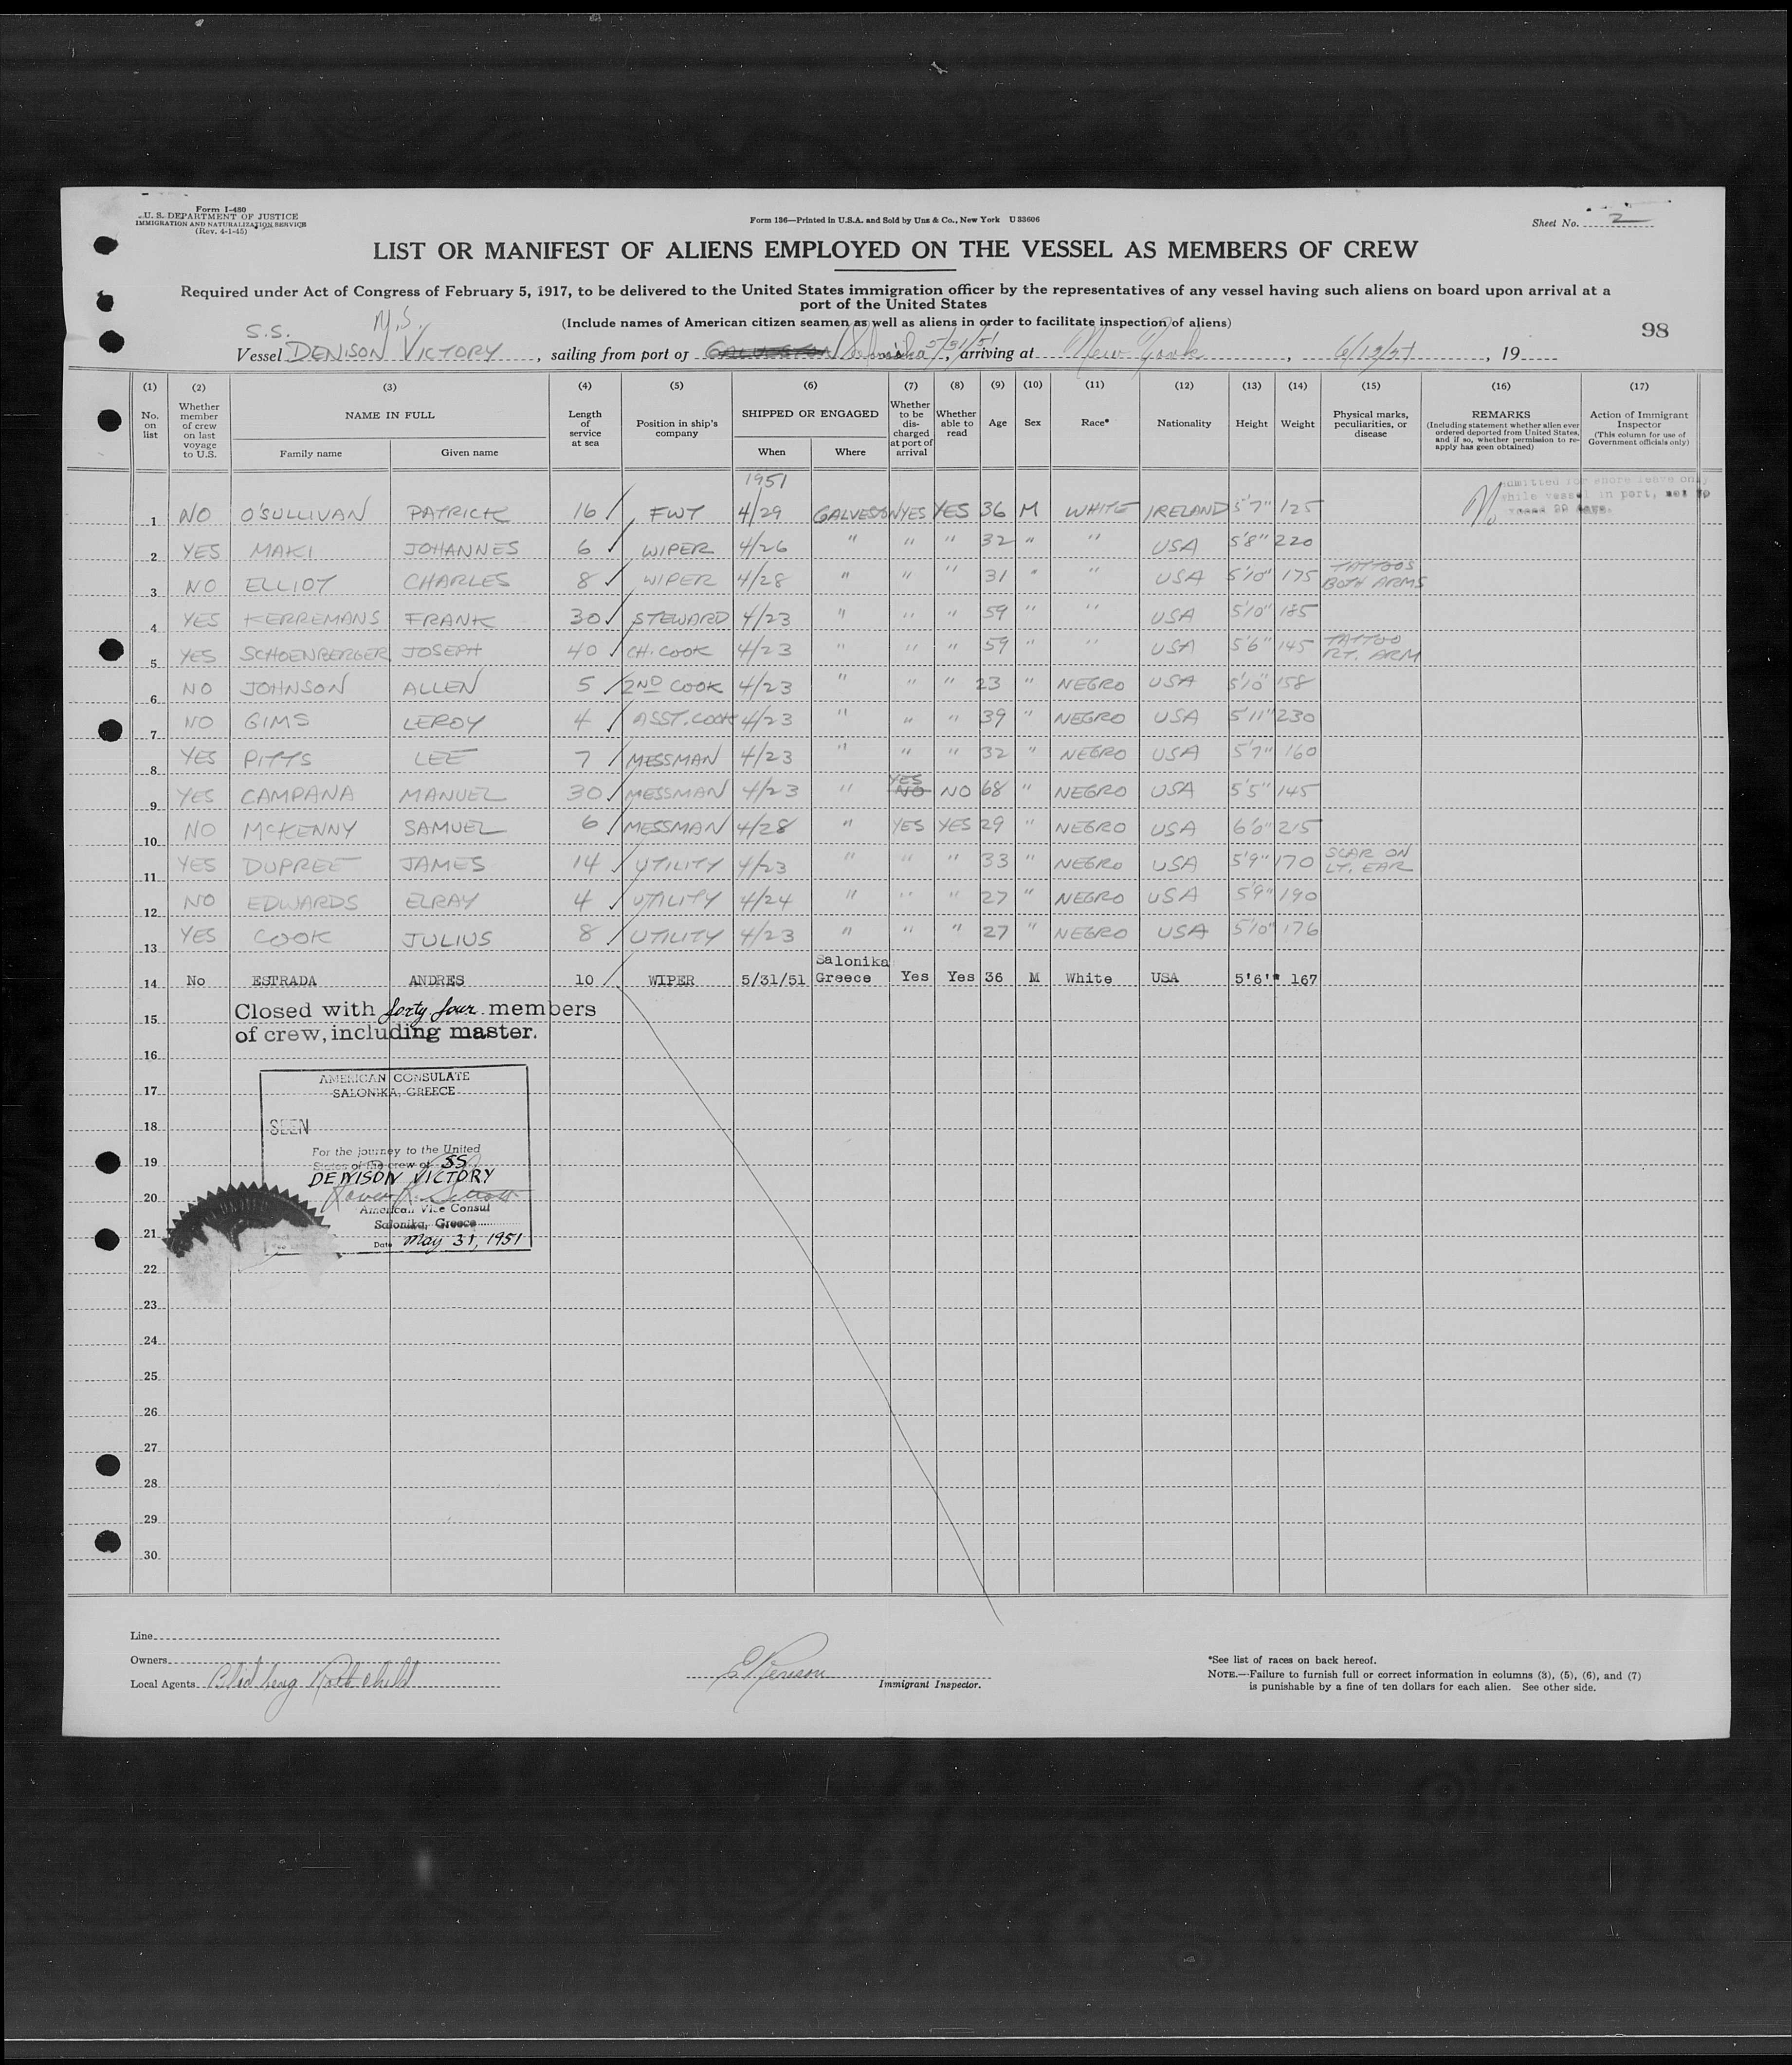 Form I-480
U. S. DEPARTMENT OF JUSTICE
IMMIGRATION AND NATURALIZATION SERVICE
(Rev. 4-1-45)
Form 136—Printed in U.S.A. and Sold by Unz & Co., New York U 33606
Sheet No. 2
LIST OR MANIFEST OF ALIENS EMPLOYED ON THE VESSEL AS MEMBERS OF CREW
Required under Act of Congress of February 5, 1917, to be delivered to the United States immigration officer by the representatives of any vessel having such aliens on board upon arrival at a
port of the United States
(Include names of American citizen seamen as well as aliens in order to facilitate inspection of aliens)
98
S.S. M.S.
Vessel DENISON VICTORY, sailing from port of GALVESTON 5/31/51, arriving at New York, 6/13/51, 19
(1) (2) (3) (4) (5) (6) (7) (8) (9) (10) (11) (12) (13) (14) (15) (16) (17)
No. on list
Whether member of crew on last voyage to U.S.
NAME IN FULL
Family name
Given name
Length of service at sea
Position in ship's company
SHIPPED OR ENGAGED
When
Where
Whether to be discharged at port of arrival
Whether able to read
Age
Sex
Race*
Nationality
Height
Weight
Physical marks, peculiarities, or disease
REMARKS
(Including statement whether alien ever ordered deported from United States, and if so, whether permission to re-apply has geen obtained)
Action of Immigrant Inspector
(This column for use of Government officials only)
1951
admitted for shore leave only
while vessel in port, not to
exceed 29 days.
1 NO O'SULLIVAN PATRICK 16 FWT 4/29 GALVESTON YES YES 36 M WHITE IRELAND 5'7" 125 No
2 YES MAKI JOHANNES 6 WIPER 4/26 " " " 32 " " USA 5'8" 220
3 NO ELLIOT CHARLES 8 WIPER 4/28 " " " 31 " " USA 5'10" 175 TATTOOS BOTH ARMS
4 YES KERREMANS FRANK 30 STEWARD 4/23 " " " 59 " " USA 5'10" 185
5 YES SCHOENBERGER JOSEPH 40 CH. COOK 4/23 " " " 59 " " USA 5'6" 145 TATTOO RT. ARM
6 NO JOHNSON ALLEN 5 2ND COOK 4/23 " " " 23 " NEGRO USA 5'10" 158
7 NO GIMS LEROY 4 ASST. COOK 4/23 " " " 39 " NEGRO USA 5'11" 230
8 YES PITTS LEE 7 MESSMAN 4/23 " " " 32 " NEGRO USA 5'7" 160
9 YES CAMPANA MANUEL 30 MESSMAN 4/23 " YES NO NO 68 " NEGRO USA 5'5" 145
10 NO McKENNY SAMUEL 6 MESSMAN 4/28 " YES YES 29 " NEGRO USA 6'0" 215
11 YES DUPREE JAMES 14 UTILITY 4/23 " " " 33 " NEGRO USA 5'9" 170 SCAR ON LT. EAR
12 NO EDWARDS ELRAY 4 UTILITY 4/24 " " " 27 " NEGRO USA 5'9" 190
13 YES COOK JULIUS 8 UTILITY 4/23 " " " 27 " NEGRO USA 5'10" 176
14 No ESTRADA ANDRES 10 WIPER 5/31/51 Salonika Greece Yes Yes 36 M White USA 5'6" 167
Closed with forty four members
15
of crew, including master.
16
AMERICAN CONSULATE
17
SALONIKA, GREECE
18
SEEN
For the journey to the United
19
States of the crew of SS
DENISON VICTORY
20
American Vice Consul
Salonika, Greece
21
Date May 31, 1951
22
23
24
25
26
27
28
29
30
Line
Owners
Local Agents
Immigrant Inspector.
*See list of races on back hereof.
NOTE.—Failure to furnish full or correct information in columns (3), (5), (6), and (7)
is punishable by a fine of ten dollars for each alien. See other side.